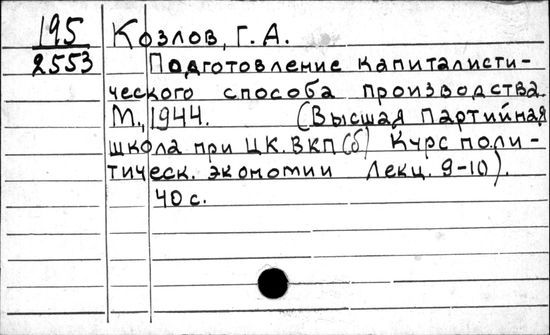 195 Козлов, Г. А.
2553 Подготовление капиталисти-
ческого способа производства.
М., 1944. (Высшая Партийная
школа при ЦК. ВКП(б) Курс поли-
тическ. экономии Лекц. 9-10).
40 с.